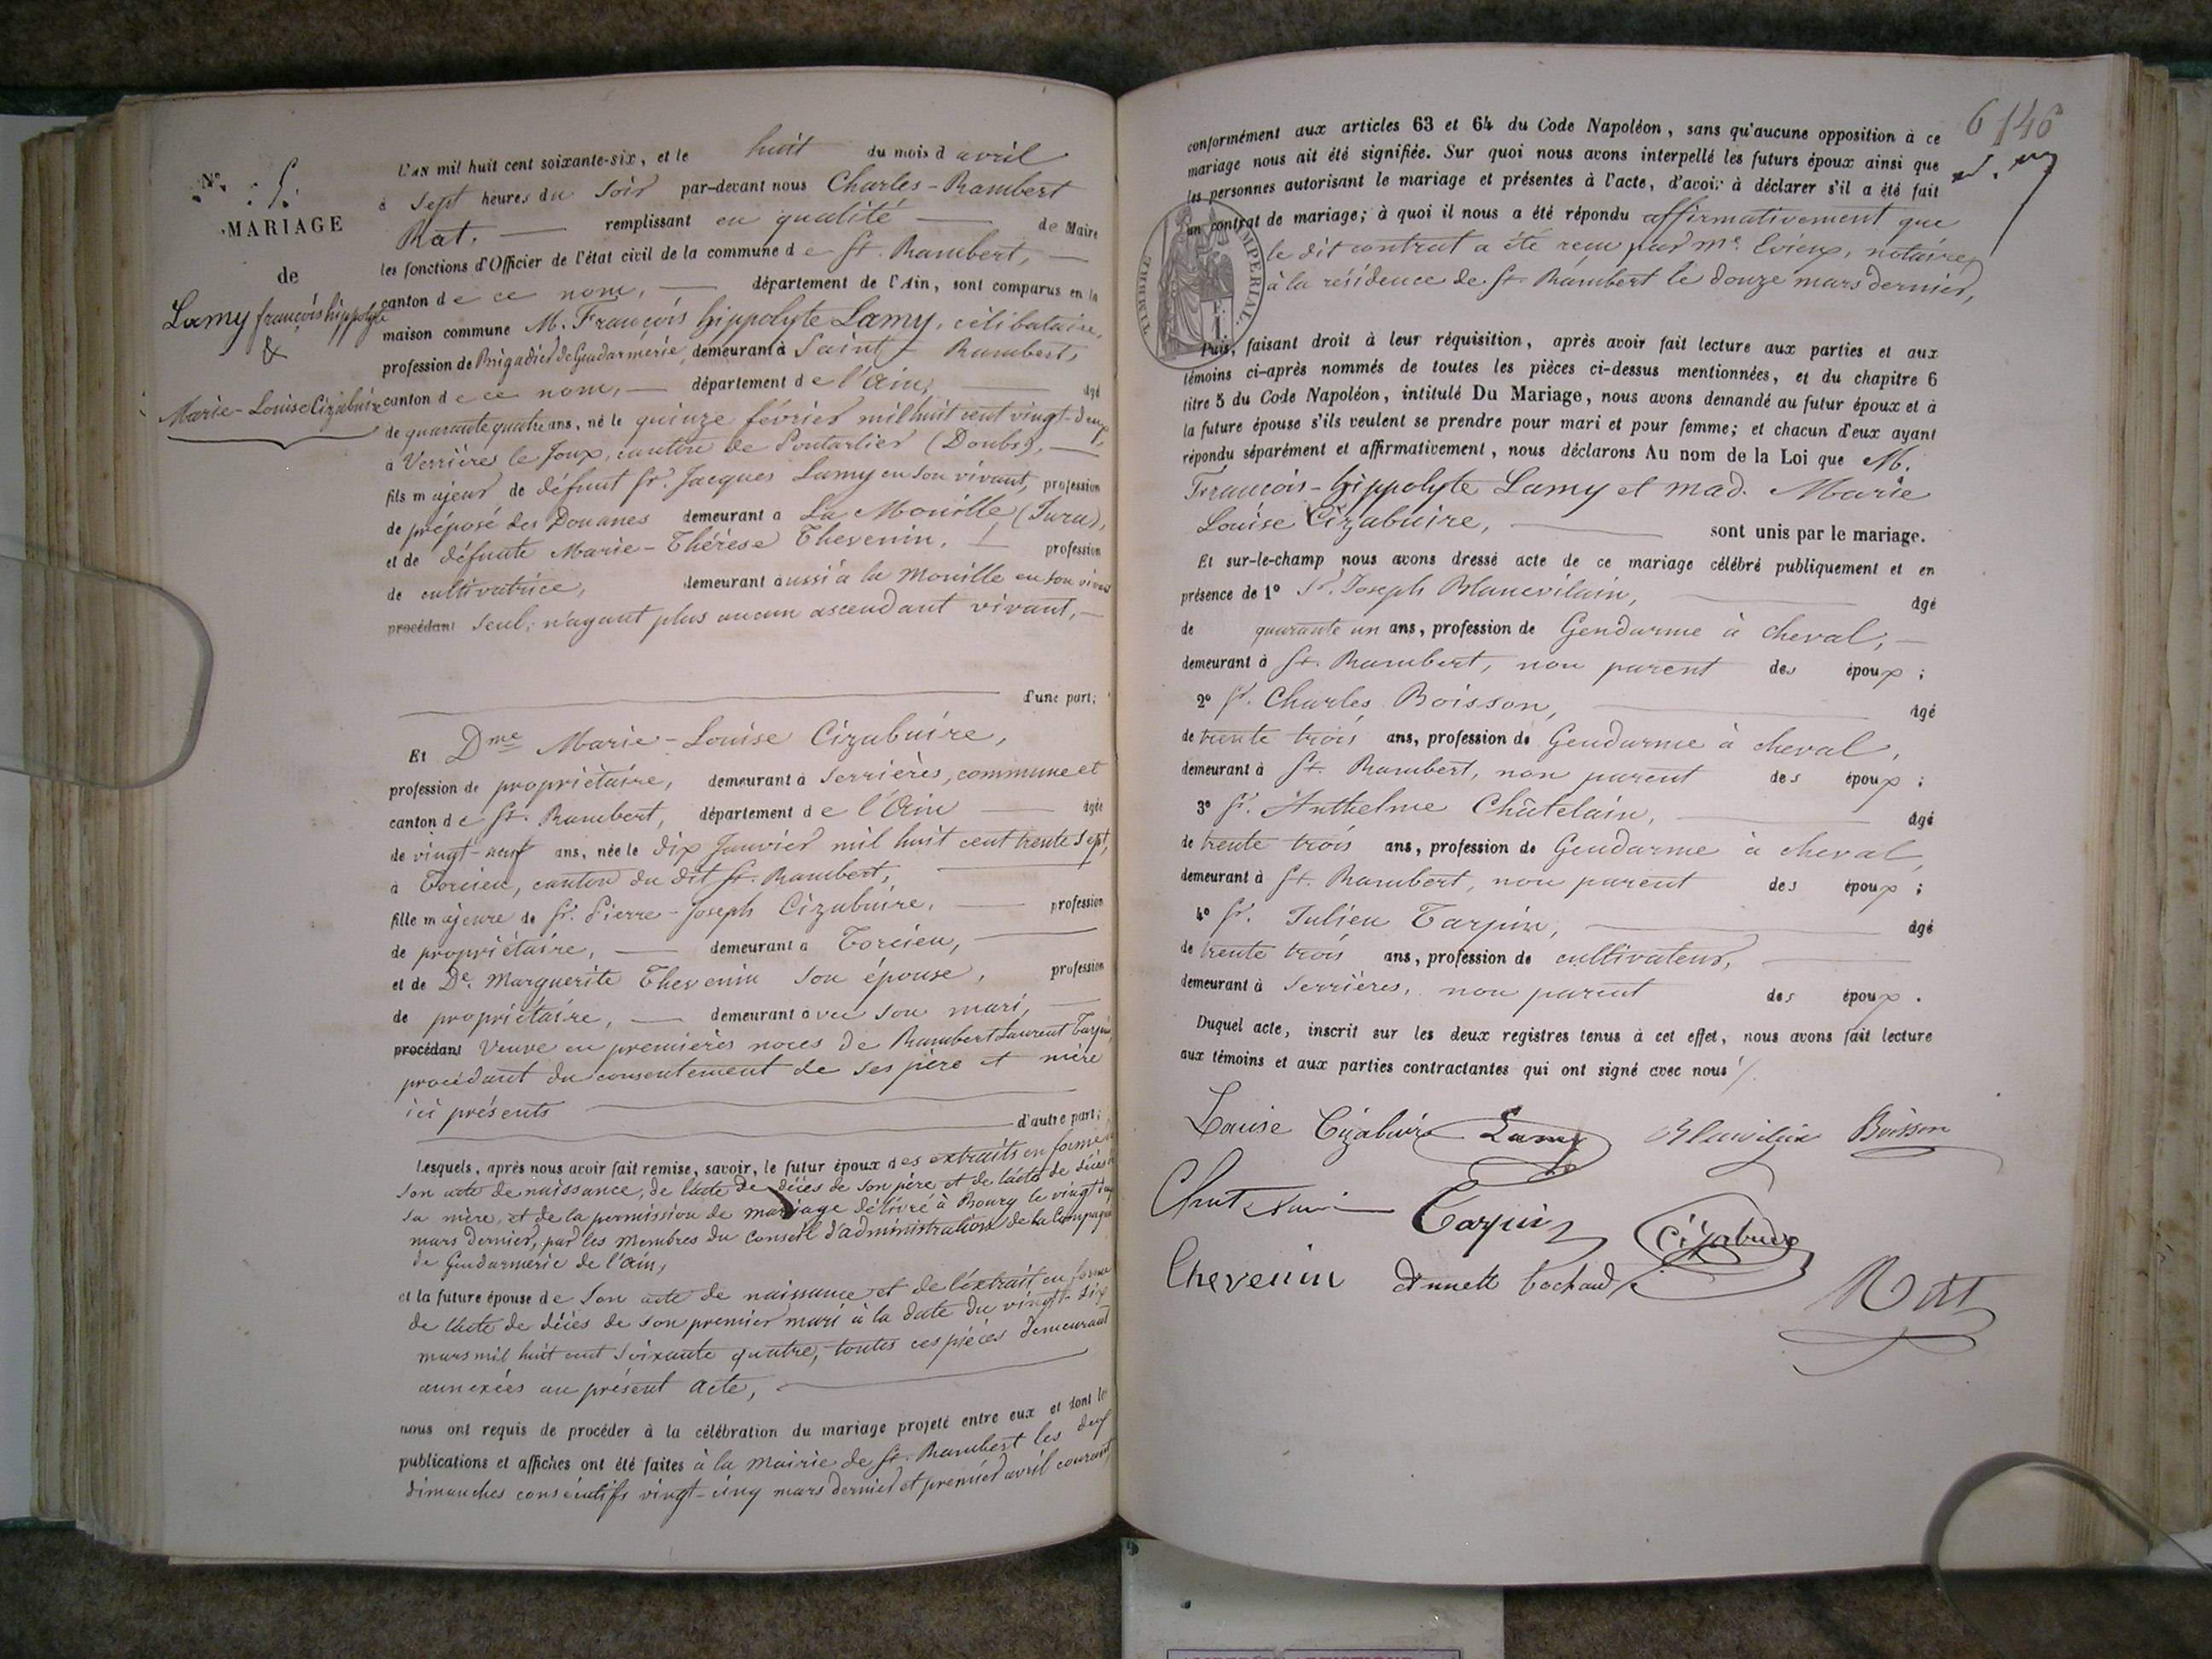 N° 5.
MARIAGE
de
Lamy françois hippolyte
&
Marie-Louise Cizabuire
L'an mil huit cent soixante-six, et le huit du mois d avril
à sept heures du soir par-devant nous Charles-Rambert
Rat, remplissant en qualité de Maire
les fonctions d'Officier de l'état civil de la commune de St. Rambert,
canton de ce nom, département de l'Ain, sont comparus en la
maison commune M. François hippolyte Lamy, célibataire,
profession de Brigadier de Gendarmerie, demeurant à Saint Rambert
canton de ce nom, département de l'Ain, âgé
de quarante quatre ans, né le quinze février mil huit cent vingt-deux,
à Verrières le Joux, canton de Pontarlier (Doubs),
fils majeur de défunt Sr. Jacques Lamy en son vivant, profession
de préposé des Douanes demeurant à La Mouille (Jura),
et de défunte Marie-Thérèse Thevenin, profession
de cultivatrice, demeurant aussi à la Mouille en son vivant
procédant seul, n'ayant plus aucun ascendant vivant,
d'une part;
Et Dme Marie-Louise Cizabuire,
profession de propriétaire, demeurant à Serrières, commune et
canton de St. Rambert, département de l'Ain âgée
de vingt-neuf ans, née le dix Janvier mil huit cent trente sept,
à Torcieu, canton du dit St. Rambert,
fille majeure de Sr. Pierre-Joseph Cizabuire, profession
de propriétaire, demeurant à Torcieu,
et de De. Marguerite Thevenin son épouse, profession
de propriétaire, demeurant avec son mari,
procédant Veuve en premières noces de Rambert Laurent Tarpin,
procédant du consentement de ses père et mère
ici présents
d'autre part;
Lesquels, après nous avoir fait remise, savoir, le futur époux des extraits en forme de
son acte de naissance, de l'acte de décès de son père et de l'acte de décès de
sa mère, et de la permission de mariage délivré à Bourg le vingt deux
mars dernier, par les Membres du Conseil d'administration de la Compagnie
de Gendarmerie de l'Ain,
et la future épouse de son acte de naissance et de l'extrait en forme
de l'acte de décès de son premier mari à la date du vingt-six
mars mil huit cent soixante quatre, toutes ces pièces demeurant
annexées au présent acte,
nous ont requis de procéder à la célébration du mariage projeté entre eux et dont les
publications et affiches ont été faites à la mairie de St. Rambert les deux
dimanches consécutifs vingt-cinq mars dernier et premier avril courant,
6 146
conformément aux articles 63 et 64 du Code Napoléon, sans qu'aucune opposition à ce
mariage nous ait été signifiée. Sur quoi nous avons interpellé les futurs époux ainsi que
les personnes autorisant le mariage et présentes à l'acte, d'avoir à déclarer s'il a été fait
un contrat de mariage; à quoi il nous a été répondu affirmativement que
le dit contrat a été reçu par Me. Evieux, notaire,
à la résidence de St. Rambert le douze mars dernier,
TIMBRE IMPERIAL.
Puis, faisant droit à leur réquisition, après avoir fait lecture aux parties et aux
témoins ci-après nommés de toutes les pièces ci-dessus mentionnées, et du chapitre 6
titre 5 du Code Napoléon, intitulé Du Mariage, nous avons demandé au futur époux et à
la future épouse s'ils veulent se prendre pour mari et pour femme; et chacun d'eux ayant
répondu séparément et affirmativement, nous déclarons Au nom de la Loi que M.
François-hippolyte Lamy et mad. Marie
Louise Cizabuire, sont unis par le mariage.
Et sur-le-champ nous avons dressé acte de ce mariage célébré publiquement et en
présence de 1° Sr. Joseph Blancvilain, âgé
de quarante un ans, profession de Gendarme à cheval,
demeurant à St. Rambert, non parent des époux;
2° Sr. Charles Boisson, âgé
de trente trois ans, profession de Gendarme à cheval,
demeurant à St. Rambert, non parent des époux;
3° Sr. Anthelme Châtelain, âgé
de trente trois ans, profession de Gendarme à cheval,
demeurant à St. Rambert, non parent des époux;
4° Sr. Julien Tarpin, âgé
de trente trois ans, profession de cultivateur,
demeurant à Serrières, non parent des époux.
Duquel acte, inscrit sur les deux registres tenus à cet effet, nous avons fait lecture
aux témoins et aux parties contractantes qui ont signé avec nous /.
Louise Cizabuire Lamy Blancvilain Boisson
Chatelain Tarpin Cizabuire
Thevenin Annette Cochaud Rat